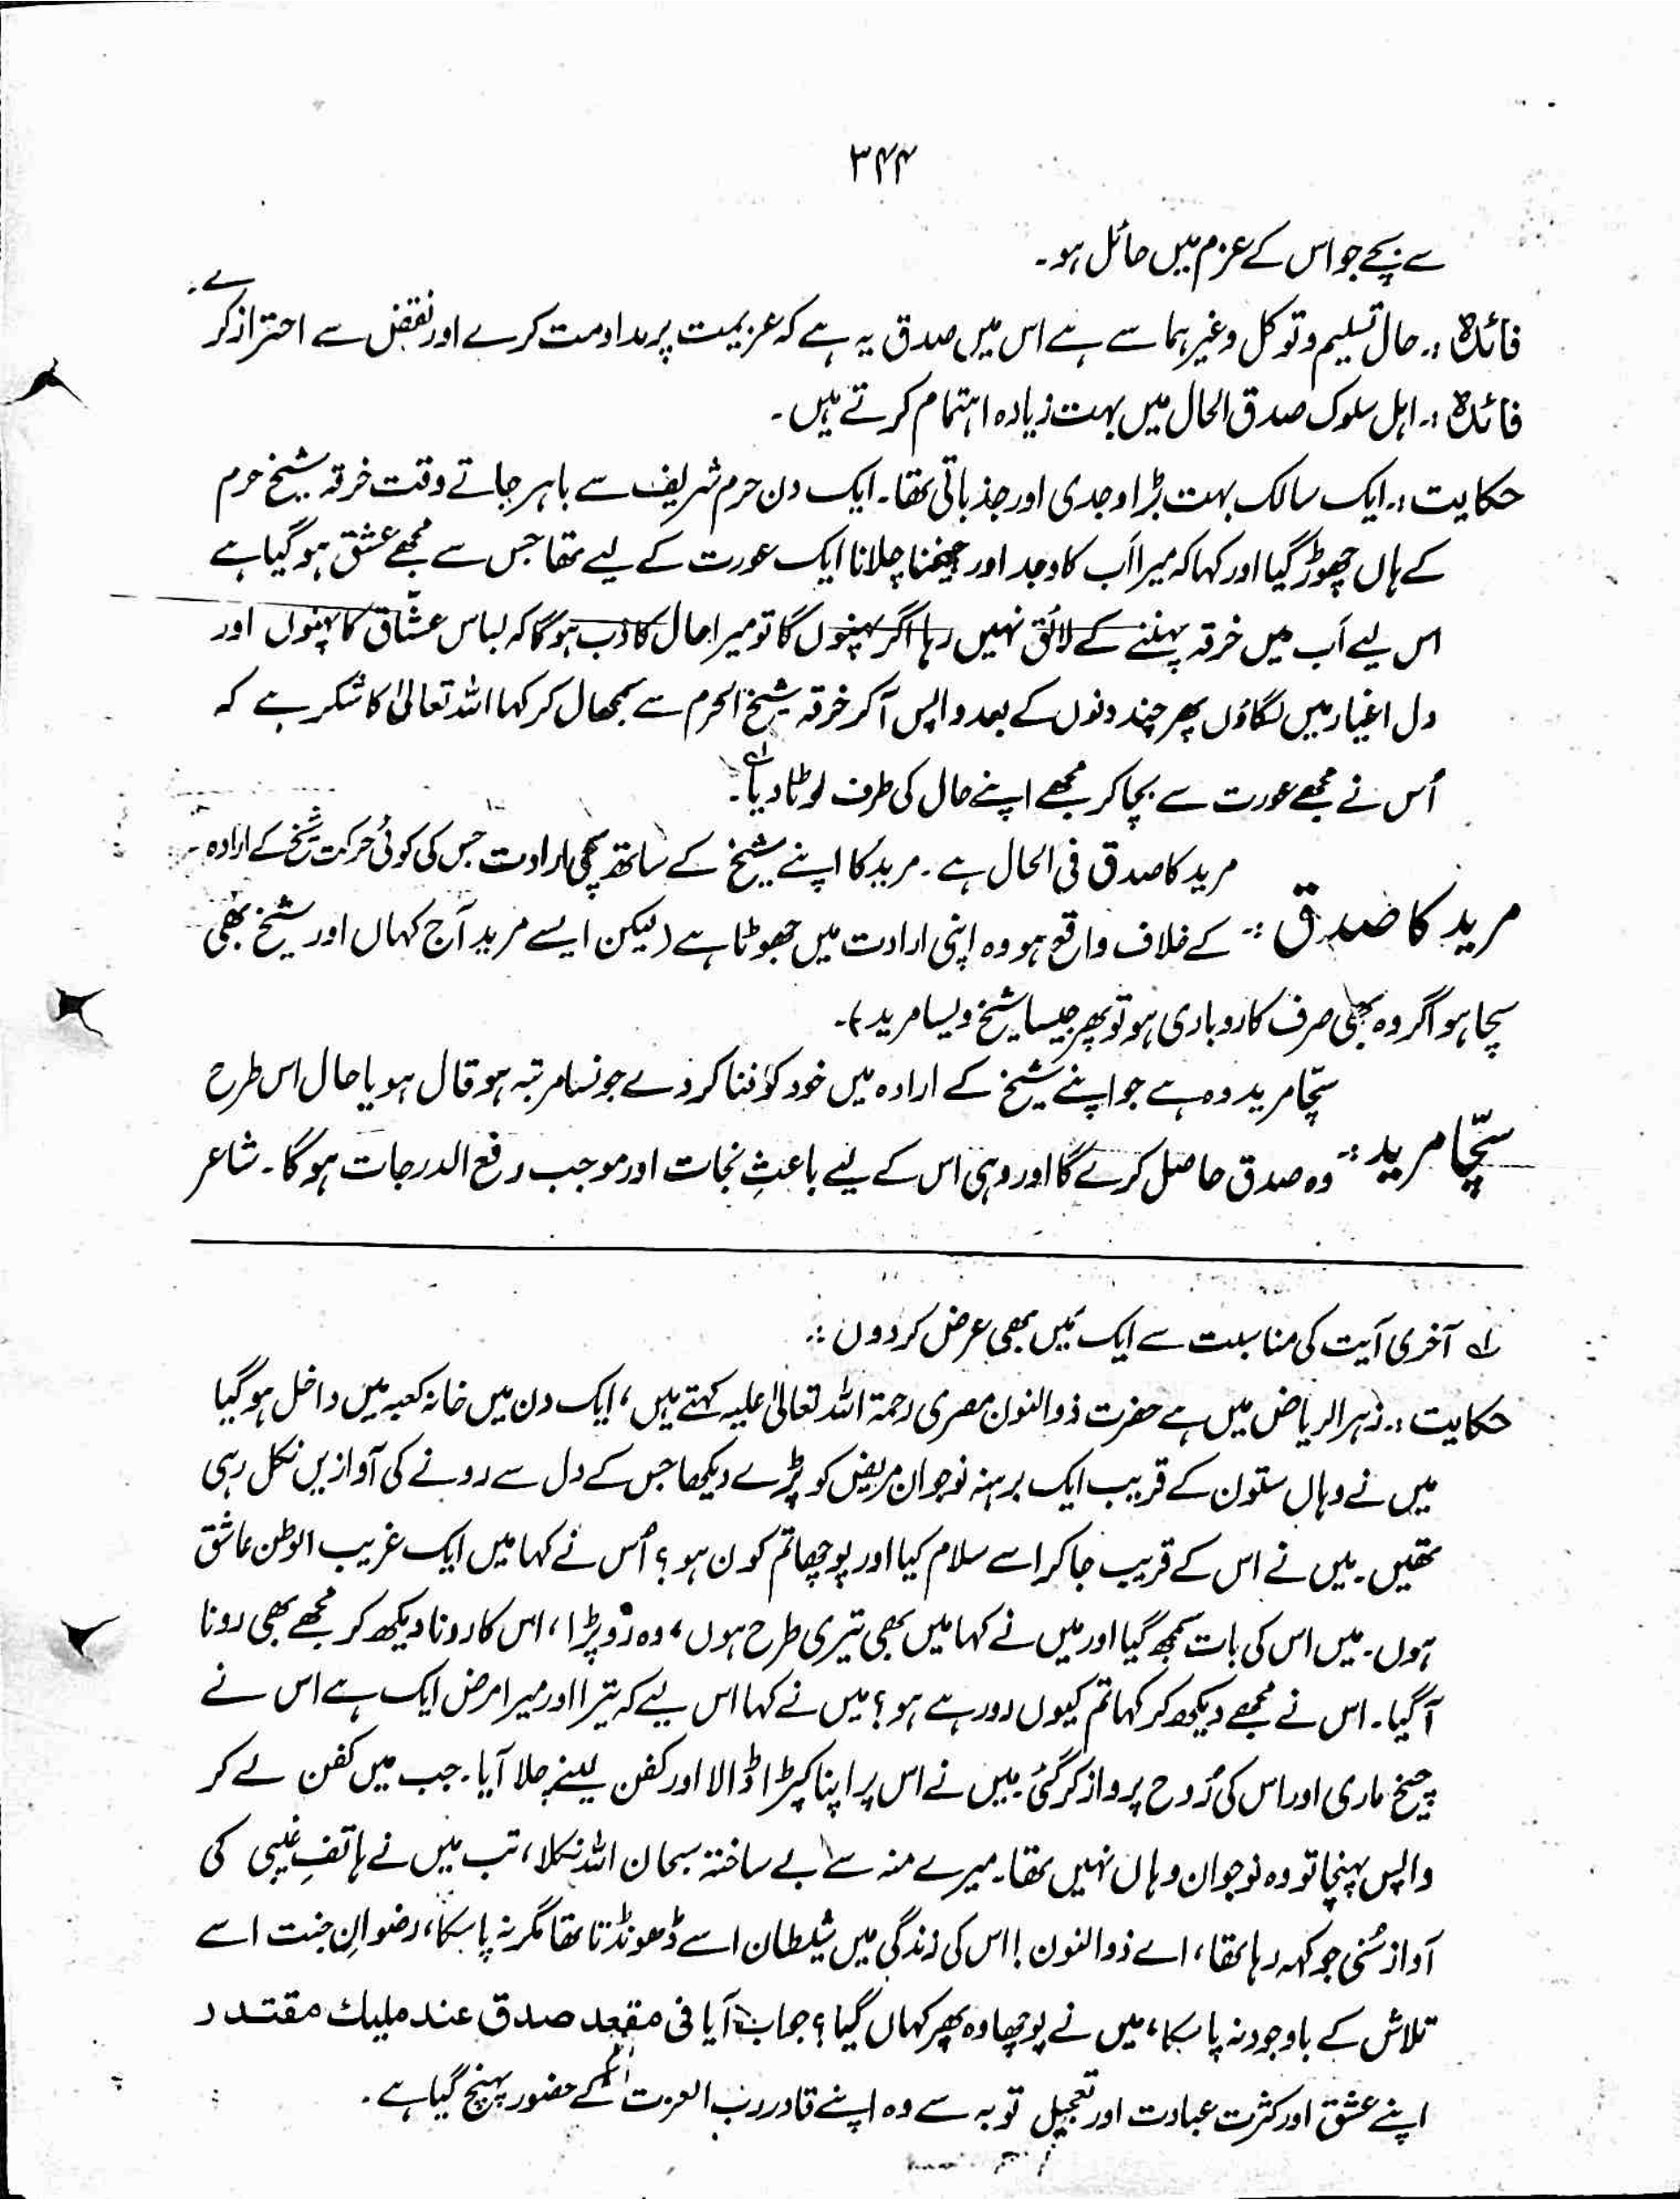 ۳۴۴
سے بچے جو اس کے عزم میں حائل ہو۔
فائدہ :۔ حال تسلیم و توکل وغیرہما سے ہے اس میں صدق یہ ہے کہ عزیمت پر مداومت کرے اور نقض سے احتراز کرے۔
فائدہ :۔ اہل سلوک صدق الحال میں بہت زیادہ اہتمام کرتے ہیں۔
حکایت :۔ ایک سالک بہت بڑا وجدی اور جذباتی تھا۔ ایک دن حرم شریف سے باہر جاتے وقت خرقہ شیخ حرم
کے ہاں چھوڑ گیا اور کہا کہ میرا اَب کا وجد اور چیخنا چلانا ایک عورت کے لیے تھا جس سے مجھے عشق ہو گیا ہے
اس لیے اَب میں خرقہ پہننے کے لائق نہیں رہا اگر پہنوں گا تو میرا حال کاذب ہو گا کہ لباس عشّاق کا پہنوں اور
دل اغیار میں لگاؤں پھر چند دنوں کے بعد واپس آ کر خرقہ شیخ الحرم سے سمبھال کر کہا اللہ تعالیٰ کا شکر ہے کہ
اُس نے مجھے عورت سے بچا کر مجھے اپنے حال کی طرف لوٹا دیا۔
مرید کا صدق فی الحال ہے۔ مرید کا اپنے شیخ کے ساتھ سچی ارادت جس کی کوئی حرکت شیخ کے ارادہ
مرید کا صدق :۔ کے خلاف واقع ہو وہ اپنی ارادت میں جھوٹا ہے (لیکن ایسے مرید آج کہاں اور شیخ بھی
سچا ہو اگر وہ بھی صرف کاروباری ہو تو پھر جیسا شیخ ویسا مرید)۔
سچّا مرید وہ ہے جو اپنے شیخ کے ارادہ میں خود کو فنا کر دے جونسا مرتبہ ہو قال ہو یا حال اس طرح
سچّا مرید :۔ وہ صدق حاصل کرے گا اور وہی اس کے لیے باعثِ نجات اور موجب رفع الدرجات ہو گا۔ شاعر
لے آخری آیت کی مناسبت سے ایک میں بھی عرض کر دوں :۔
حکایت :۔ زہر الریاض میں ہے حضرت ذوالنون مصری رحمۃ اللہ تعالیٰ علیہ کہتے ہیں، ایک دن میں خانہ کعبہ میں داخل ہو گیا
میں نے وہاں ستون کے قریب ایک برہنہ نوجوان مریض کو پڑے دیکھا جس کے دل سے رونے کی آوازیں نکل رہی
تھیں۔ میں نے اس کے قریب جا کر اسے سلام کیا اور پوچھا تم کون ہو؟ اُس نے کہا میں ایک غریب الوطن عاشق
ہوں۔ میں اس کی بات سمجھ گیا اور میں نے کہا میں بھی تیری طرح ہوں، وہ رو پڑا، اس کا رونا دیکھ کر مجھے بھی رونا
آ گیا۔ اس نے مجھے دیکھ کر کہا تم کیوں رو رہے ہو؟ میں نے کہا اس لیے کہ تیرا اور میرا مرض ایک ہے اس نے
چیخ ماری اور اس کی رُوح پرواز کر گئی۔ میں نے اس پر اپنا کپڑا ڈالا اور کفن لینے چلا آیا۔ جب میں کفن لے کر
واپس پہنچا تو وہ نوجوان وہاں نہیں تھا۔ میرے منہ سے بے ساختہ سبحان اللہ نکلا، تب میں نے ہاتفِ غیبی کی
آواز سُنی جو کہہ رہا تھا، اے ذوالنون! اس کی زندگی میں شیطان اسے ڈھونڈتا تھا مگر نہ پا سکا، رضوانِ جنت اسے
تلاش کے باوجود نہ پا سکا، میں نے پوچھا وہ پھر کہاں گیا؟ جواب آیا فی مقعد صدق عند ملیك مقتدر
اپنے عشق اور کثرت عبادت اور تعجیل توبہ سے وہ اپنے قادر رب العزت کے حضور پہنچ گیا ہے۔